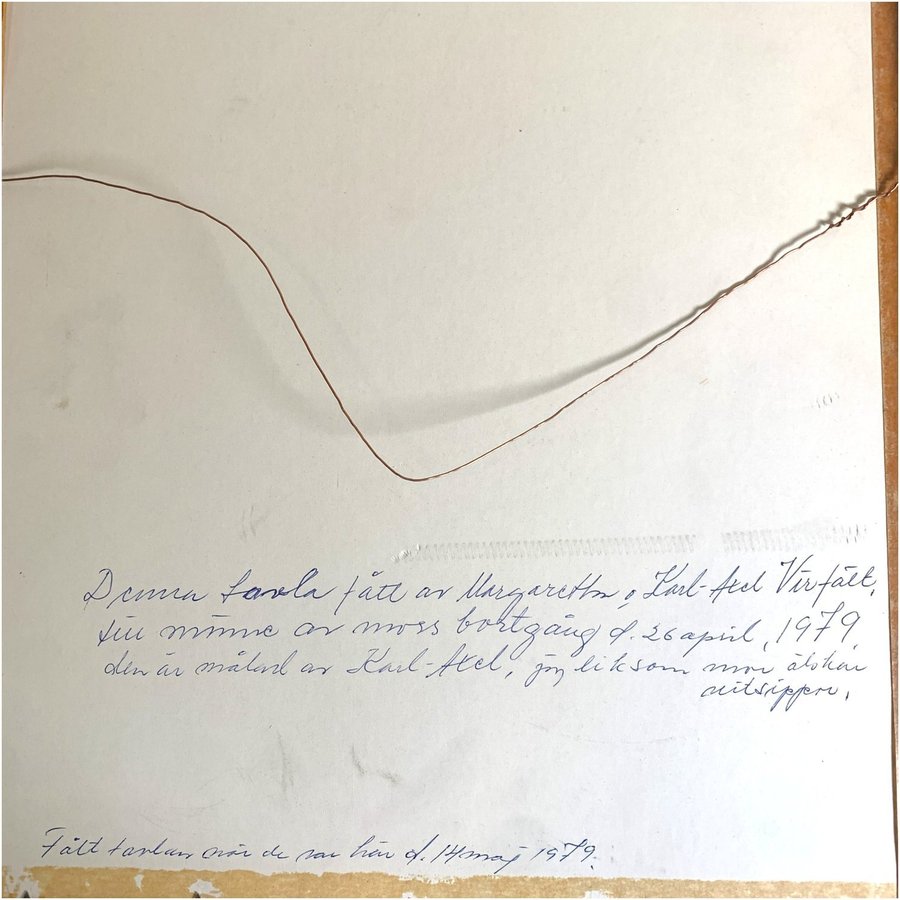 Denna tavla fått av Margaretha o Karl-Axel Virfält,
till minne av mors bortgång d. 26 april, 1979
den är målad av Karl-Axel, jag liksom mor älskar
vitsippor.
Fått tavlan när de var här d. 14 maj 1979.